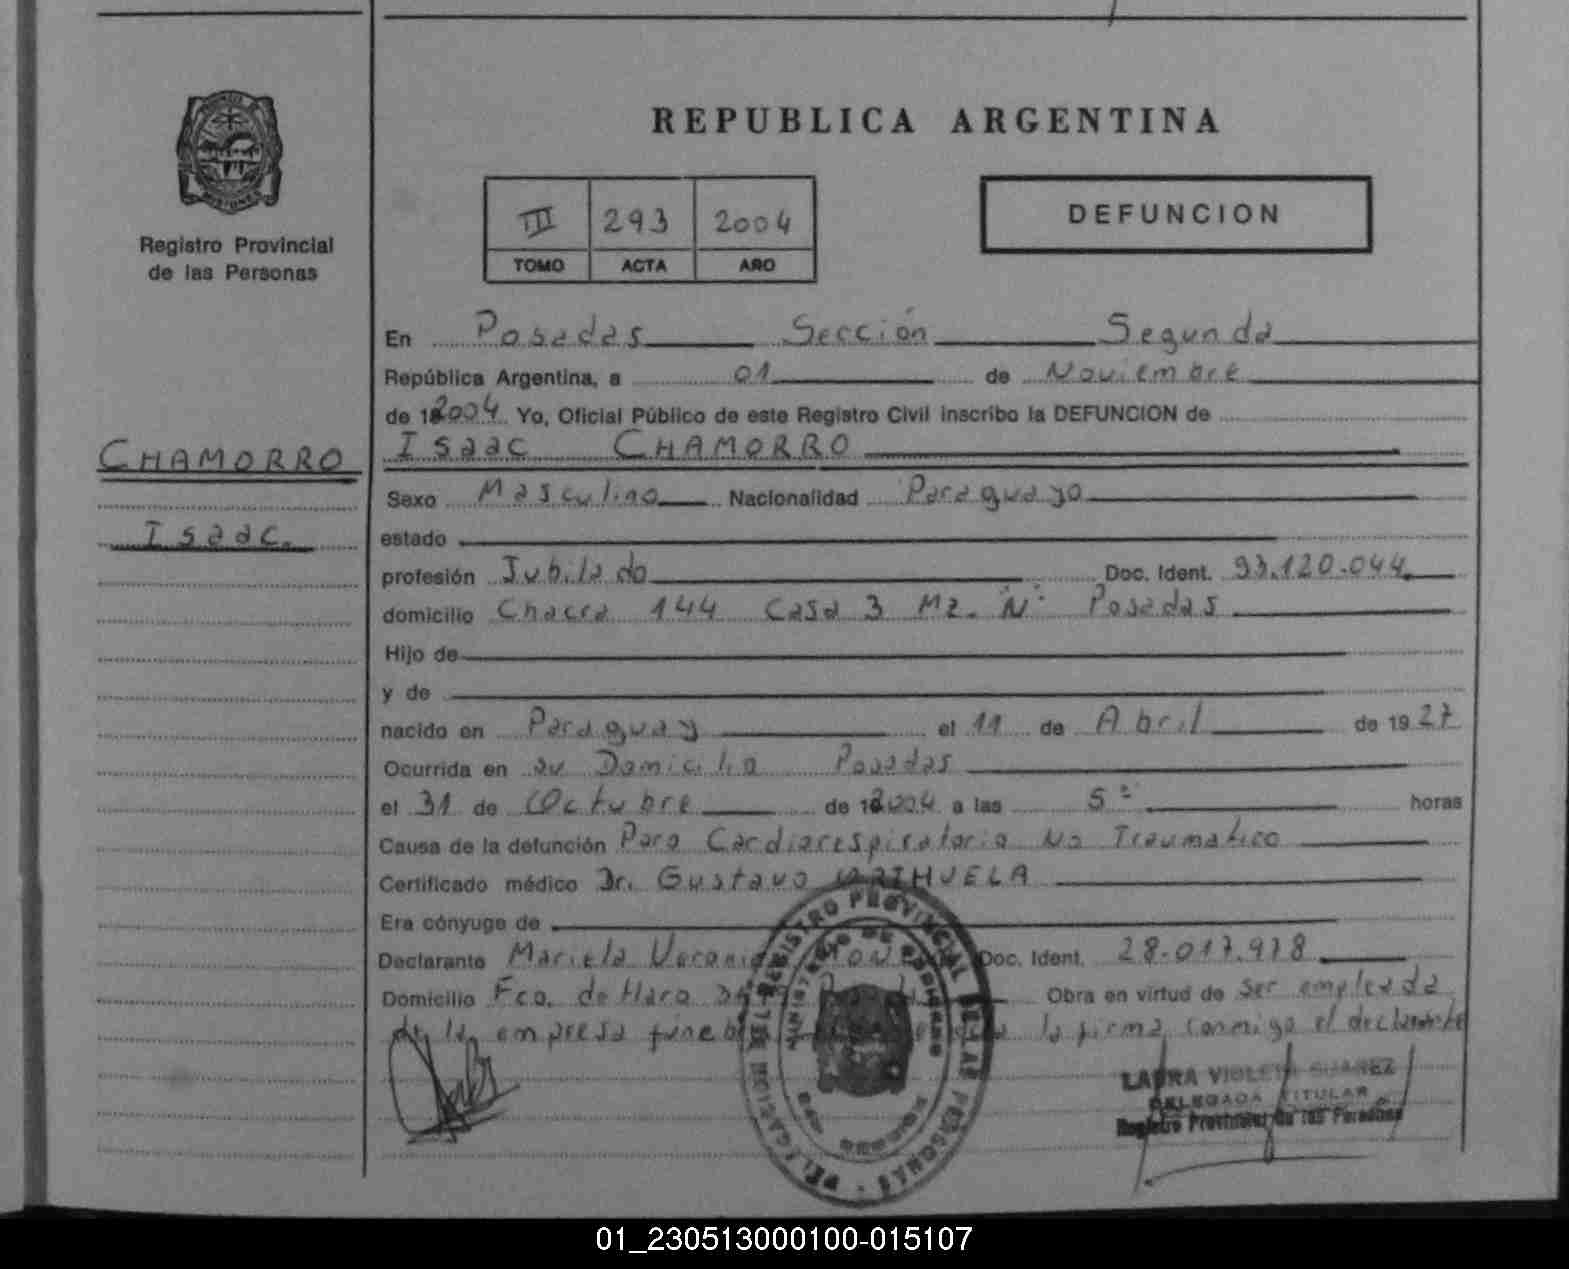 REPUBLICA ARGENTINA
Registro Provincial
de las Personas
III 293 2004
TOMO ACTA AÑO
DEFUNCION
CHAMORRO
Isaac.
En Posadas Sección Segunda
República Argentina, a 01 de Noviembre
de 2004 Yo, Oficial Público de este Registro Civil inscribo la DEFUNCION de
Isaac CHAMORRO
Sexo Masculino Nacionalidad Paraguayo
estado
profesión Jubilado Doc. Ident. 93.120.044
domicilio Chacra 144 Casa 3 Mz. "N" Posadas
Hijo de
y de
nacido en Paraguay el 11 de Abril de 1927
Ocurrida en su Domicilio Posadas
el 31 de Octubre de 2004 a las 5 horas
Causa de la defunción Paro Cardiorespiratorio No Traumatico
Certificado médico Dr. Gustavo
Era cónyuge de
Declarante Mariela Doc. Ident. 28.017.978
Domicilio Fco. de Haro Obra en virtud de ser empleada
de la empresa la firma conmigo el declarante
REGISTRO PROVINCIAL DE LAS PERSONAS
MINISTERIO DE GOBIERNO
LAURA VIOLETA SUAREZ
DELEGADA TITULAR
Registro Provincial de las Personas
01_230513000100-015107